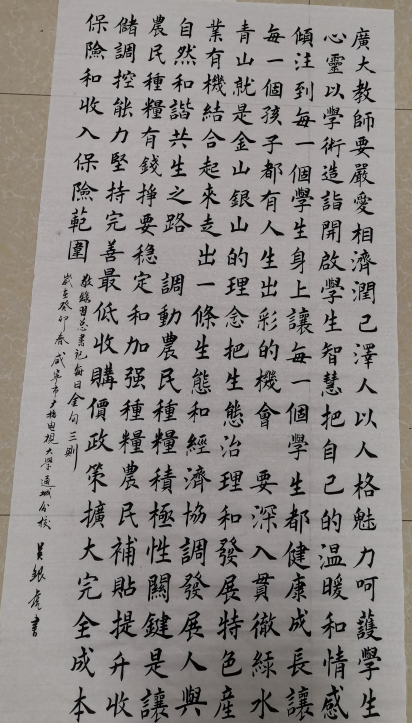 廣大教師要嚴愛相濟潤己澤人以人格魅力呵護學生
心靈以學術造詣開啟學生智慧把自己的溫暖和情感
傾注到每一個學生身上讓每一個學生都健康成長讓
每一個孩子都有人生出彩的機會 要深入貫徹綠水
青山就是金山銀山的理念把生態治理和發展特色産
業有機結合起來走出一條生態和經濟協調發展人與
自然和諧共生之路 調動農民種糧積極性關鍵是讓
農民種糧有錢掙要穩定和加强種糧農民補貼提升收
儲調控能力堅持完善最低收購價政策擴大完全成本
保險和收入保險範圍
敬錄習總書記每日金句三則
歲在癸卯春 咸寧市廣播电視大學通城分校 吳銀虎書